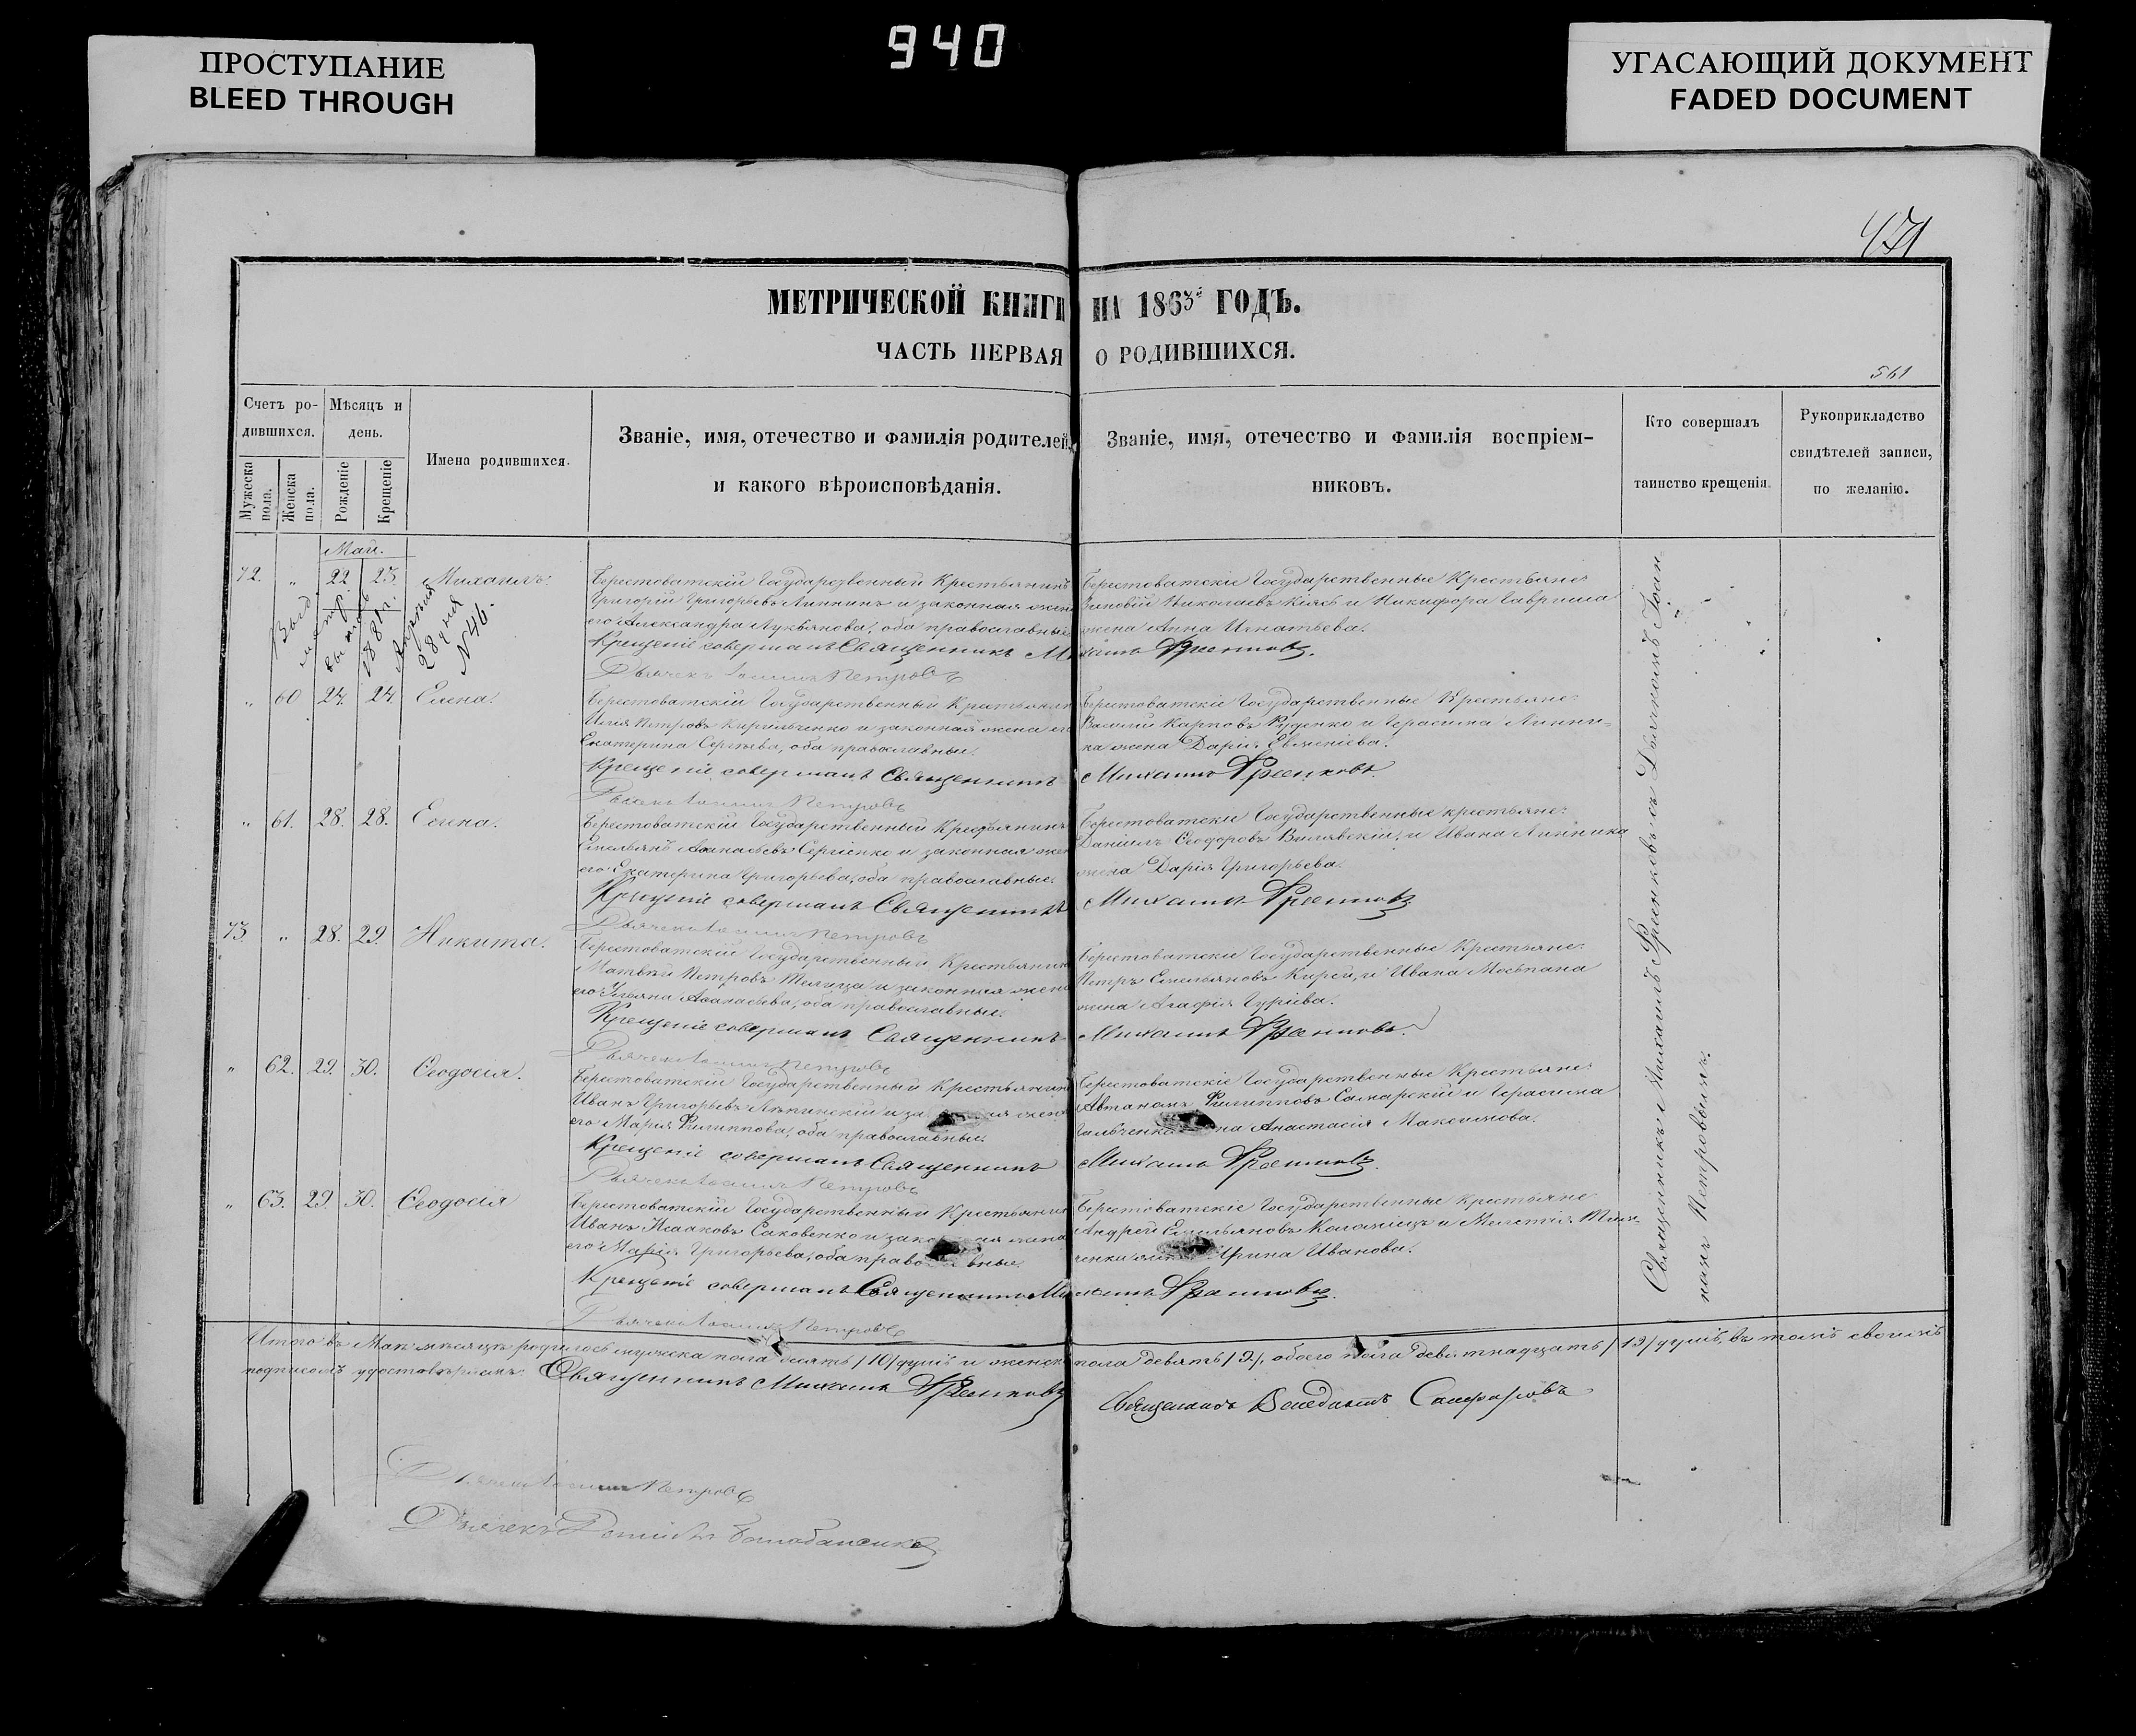 ПРОСТУПАНИЕ
BLEED THROUGH
940
УГАСАЮЩИЙ ДОКУМЕНТ
FADED DOCUMENT
МЕТРИЧЕСКОЙ КНИГИ НА 1863й ГОДЪ.
ЧАСТЬ ПЕРВАЯ О РОДИВШИХСЯ.
561
Счетъ ро-
дившихся.
Мужеска пола.
Женска пола.
Мѣсяцъ и
день.
Рожденіе
Крещеніе
Имена родившихся.
Званіе, имя, отечество и фамилія родителей,
и какого вѣроисповѣданія.
Званіе, имя, отечество и фамилія воспріем-
никовъ.
Кто совершалъ
таинство крещенія.
Рукоприкладство
свидѣтелей записи,
по желанію.
Маи.
72. " 22 23. Михаилъ.
1881 г.
28 дня
N 46.
Берестоватскій Государственный Крестьянинъ
Григорій Григорьевъ Линникъ и законная жена
его Александра Лукьянова, оба православные
Крещеніе совершалъ Священникъ Михаилъ
Дьячекъ Іоаннъ Петровъ
Берестоватскіе Государственные Крестьяне:
Зиновій Николаевъ и Никифора Гавриша
жена Анна Игнатьева.
" 60 24. 24. Елена.
Берестоватскій Государственный Крестьянинъ
Илія Петровъ Кирильченко и законная жена его
Екатерина Сергѣева, оба православные.
Крещеніе совершалъ Священникъ Михаилъ
Дьячекъ Іоаннъ Петровъ
Берестоватскіе Государственные Крестьяне:
Василій Карповъ Руденко и Герасима Линни-
ка жена Дарія Евменіева.
" 61. 28. 28. Елена.
Берестоватскій Государственный Крестьянинъ
Емельянъ Аѳанасьевъ Сергіенко и законная жена
его Екатерина Григорьева, оба православные.
Крещеніе совершалъ Священникъ Михаилъ
Дьячекъ Іоаннъ Петровъ
Берестоватскіе Государственные крестьяне:
Даніилъ Ѳеодоровъ Вилявскій, и Ивана Линника
жена Дарія Григорьева.
73. " 28. 29. Никита.
Берестоватскій Государственный Крестьянинъ
Матвѣй Петровъ Телица и законная жена
его Ульяна Аѳанасьева, оба православные.
Крещеніе совершалъ Священникъ Михаилъ
Дьячекъ Іоаннъ Петровъ
Берестоватскіе Государственные Крестьяне:
Петръ Емельяновъ Кирей, и Ивана Мосьпана
жена Агафія Гуріева.
" 62. 29. 30. Ѳеодосія.
Берестоватскій Государственный Крестьянинъ
Иванъ Григорьевъ и жена
его Марія Филиппова, оба православные.
Крещеніе совершалъ Священникъ Михаилъ
Дьячекъ Іоаннъ Петровъ
Берестоватскіе Государственные Крестьяне:
Автаномъ Филипповъ Самарскій и Герасима
Гальченка Анастасія Максимова.
" 63. 29. 30. Ѳеодосія
Берестоватскій Государственный Крестьянинъ
Иванъ Исааковъ Саковенко и жена
его Марія Григорьева, оба
Крещеніе совершалъ Священникъ Михаилъ
Дьячекъ Іоаннъ Петровъ
Берестоватскіе Государственные Крестьяне
Андрей Емельяновъ Коломіецъ и Мелетія
Ирина Иванова.
Священникъ Михаилъ съ Дьячкомъ Іоан-
номъ Петровымъ.
Итого въ Маи мѣсяцѣ родилось мужеска пола десять /10/ душъ и женска пола девять /9/, обоего пола девятнадцать /19/ душъ, въ томъ своимъ
подписомъ удостовѣряемъ Священникъ Михаилъ
Священникъ
Дьячекъ Іоаннъ Петровъ
Дьячекъ